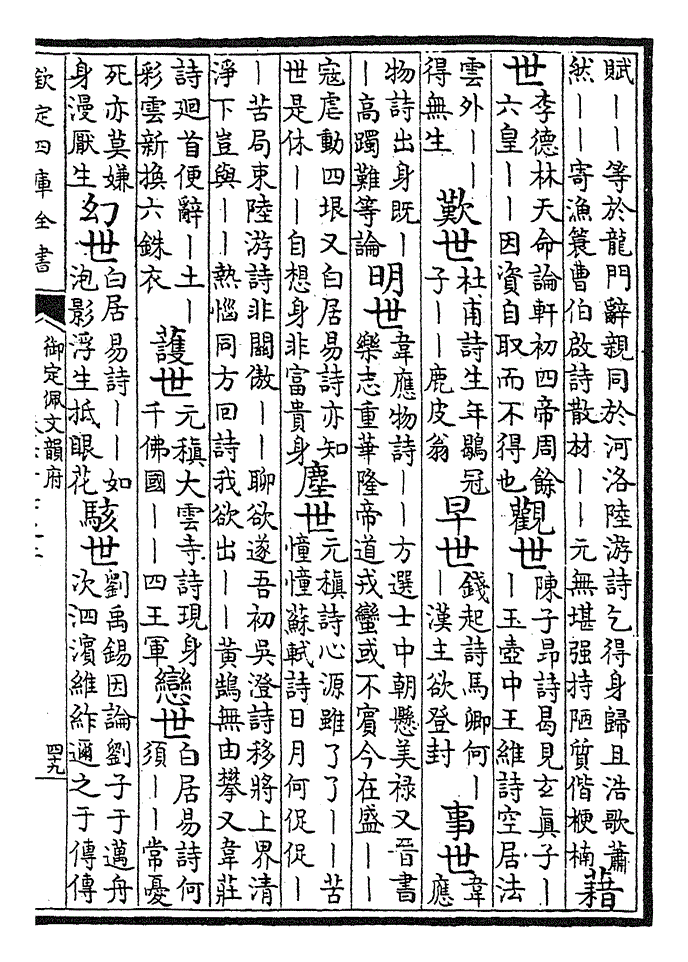 賦——等於龍門辭親同於河洛陸游詩乞得身歸且浩歌蕭
然——寄漁蓑曹伯啟詩散材——元無堪强持陋質偕梗楠
藉
世
李德林天命論軒初四帝周餘
六皇——因資自取而不得也
觀世
陳子昂詩曷見玄真子—
—玉壺中王維詩空居法
雲外——
得無生
歎世
杜甫詩生年鶡冠
子——鹿皮翁
早世
錢起詩馬卿何—
—漢主欲登封
事世
韋
應
物詩出身既—
—高躅難等論
明世
韋應物詩——方選士中朝懸美禄又晉書
樂志重華隆帝道戎蠻或不賓今在盛——
寇虐動四垠又白居易詩亦知
世是休——自想身非富貴身
塵世
元稹詩心源雖了了——苦
憧憧蘇軾詩日月何促促—
—苦局束陸游詩非關傲——聊欲遂吾初吳澄詩移將上界清
淨下豈與——熱惱同方回詩我欲出——黃鵠無由攀又韋莊
詩廻首便辭—土—
彩雲新換六銖衣
護世
元稹大雲寺詩現身
千佛國——四王軍
戀世
白居易詩何
須——常憂
死亦莫嫌
身漫厭生
幻世
白居易詩——如
泡影浮生抵眼花
駭世
劉禹錫因論劉子于邁舟
次泗濱維紼邇之于傳傳
欽定四庫全書
御定佩文韻府
四十九